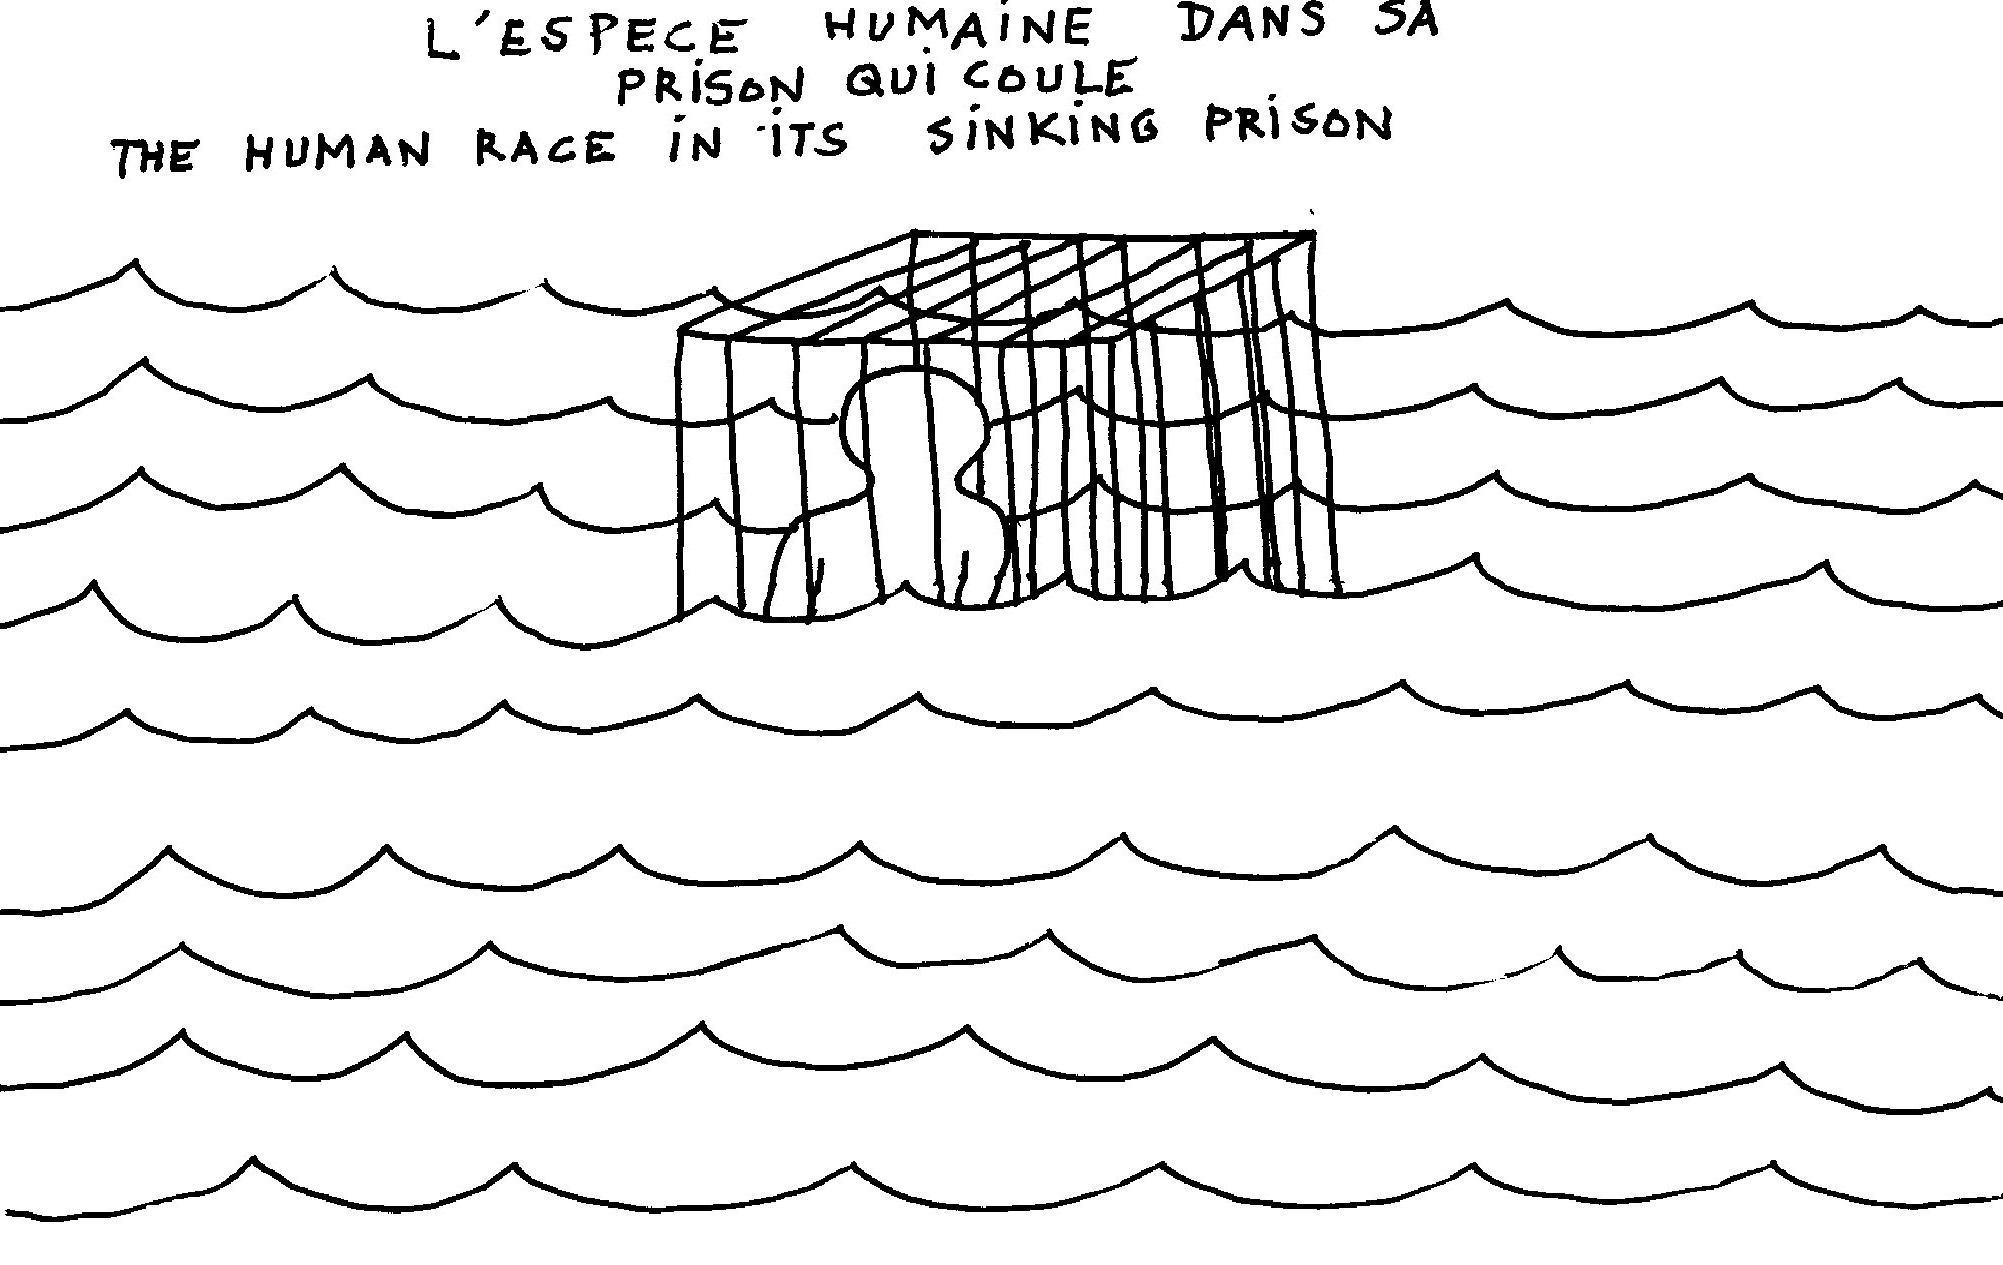 L'ESPECE HUMAINE DANS SA
PRISON QUI COULE
THE HUMAN RACE IN ITS SINKING PRISON